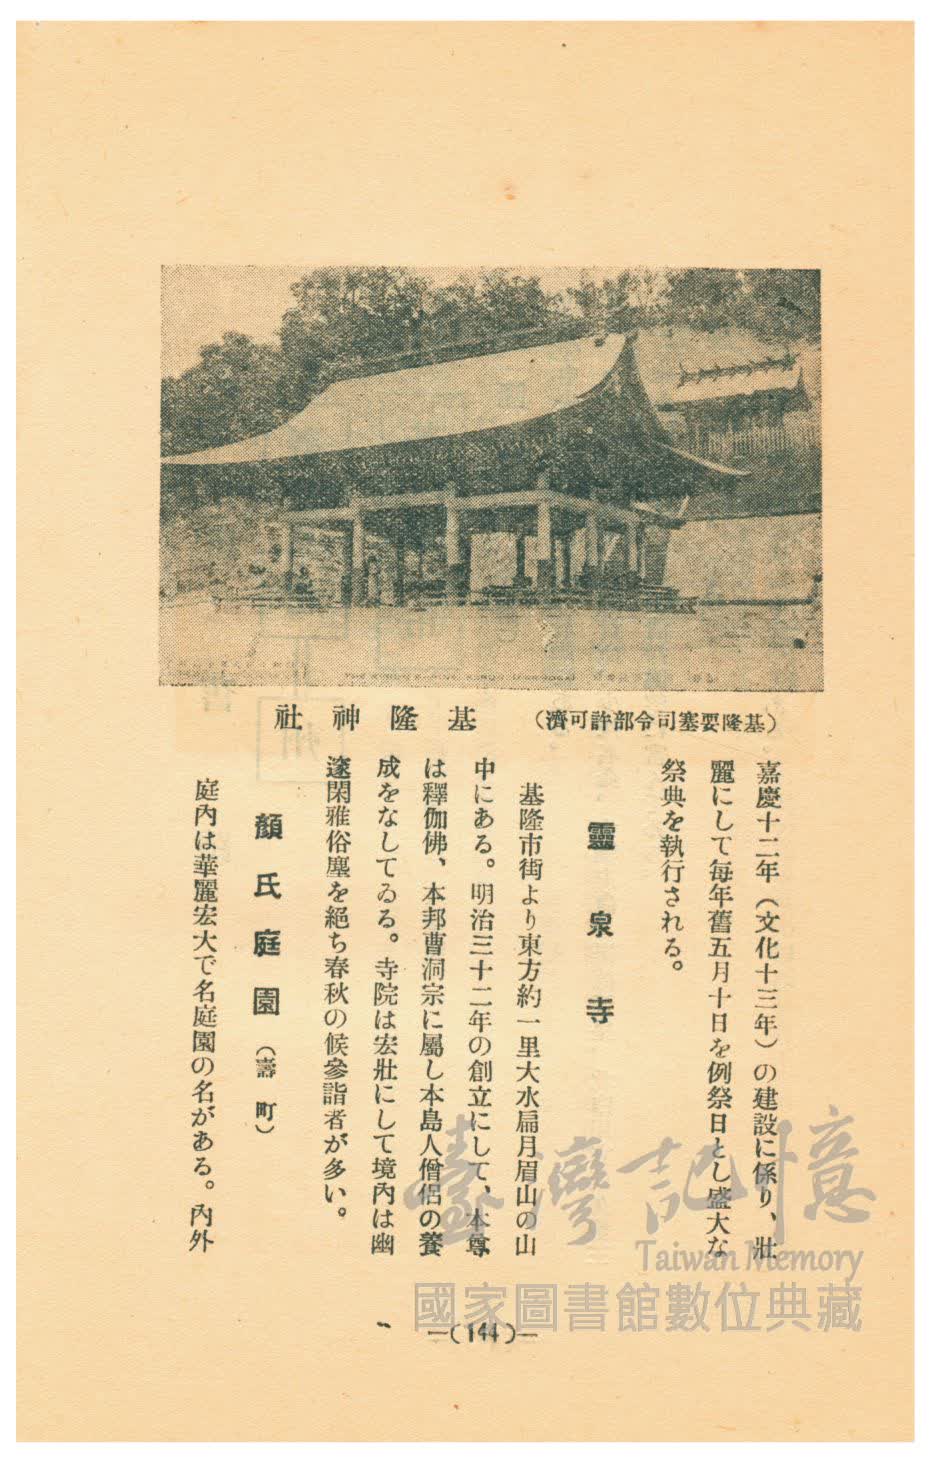 基隆神社 （基隆要塞司令部許可濟）
嘉慶十二年（文化十三年）の建設に係り、壯
麗にして每年舊五月十日を例祭日とし盛大な
祭典を執行される。
靈泉寺
基隆市街より東方約一里大水扁月眉山の山
中にある。明治三十二年の創立にして、本尊
は釋伽佛、本邦曹洞宗に屬し本島人僧侶の養
成をなしてゐる。寺院は宏壯にして境內は幽
邃閑雅俗塵を絕ち春秋の候參詣者が多い。
顏氏庭園（壽町）
庭內は華麗宏大で名庭園の名がある。內外
—(144)—
臺灣記憶
Taiwan Memory
國家圖書館數位典藏